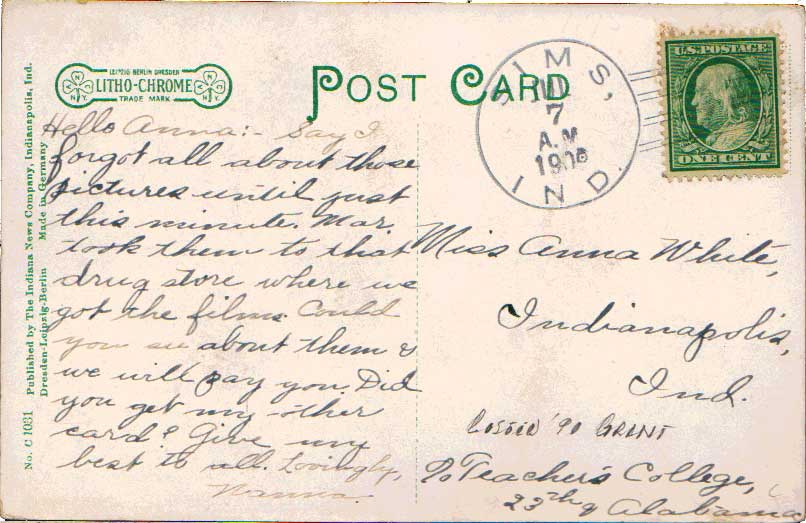 LEIPZIG BERLIN DRESDEN
LITHO-CHROME
TRADE MARK
N.Y.
N.Y.
POST CARD
SIMS,
7
A.M
IND.
U.S. POSTAGE
ONE CENT
No. C 1031 Published by The Indiana News Company, Indianapolis, Ind.
Dresden-Leipzig-Berlin Made in Germany
Hello Anna:- Say I
forgot all about those
pictures until just
this minute. Mar.
took them to that
drug store where we
got the films. Could
you see about them &
we will pay you. Did
you get my other
card? Give my
best to all. Lovingly,
Miss Anna White,
Indianapolis,
Ind.
'90 GRANT
c/o Teacher's College,
23rd & Alabama